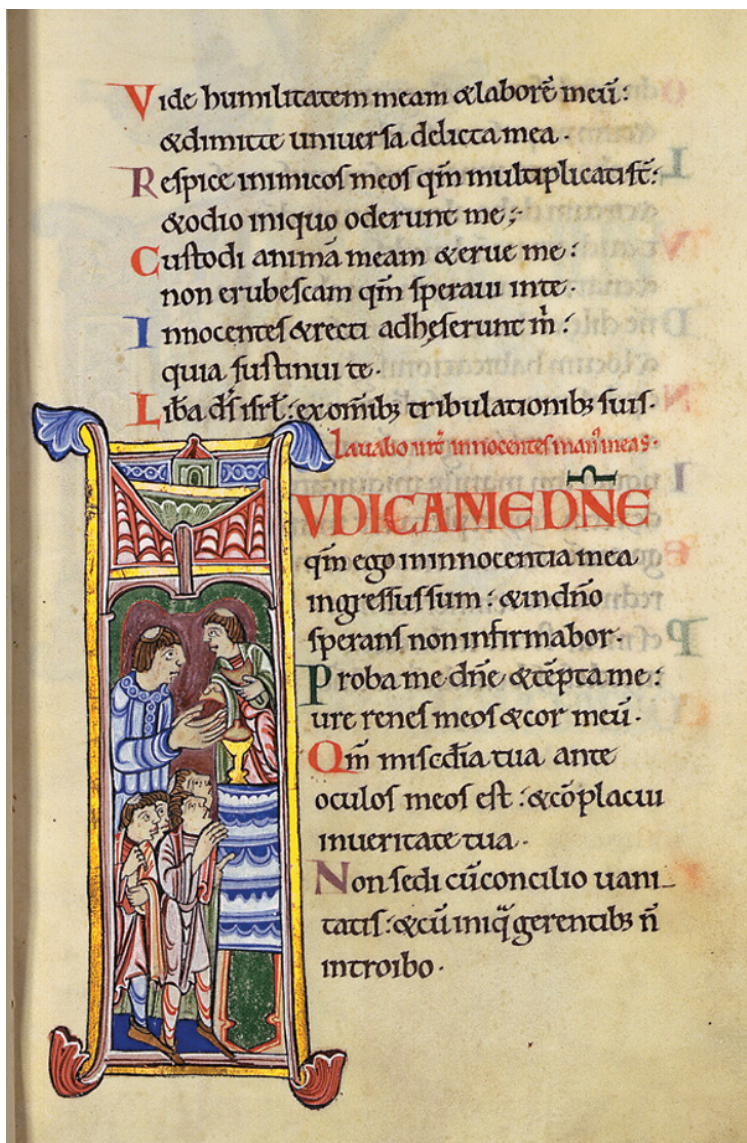 Vide humilitatem meam &laborē meū:
&dimitte universa delicta mea.
Respice inimicos meos qm̄ multiplicati st̄:
&odio iniquo oderunt me;
Custodi animā meam &erue me:
non erubescam qm̄ speravi inte.
Innocentes &recti adheserunt m̄:
quia sustinui te.
Lib̄a ds̄ isrl̄: exomib; tribulationib; suis.
Lavabo int̄ innocentes man' meas.
IUDICA ME DN̄E
qm̄ ego ininnocentia mea
ingressussum: &indn̄o
sperans noninfirmabor.
Proba me dn̄e &tēpta me:
ure renes meos &cor meū.
Qm̄ misc̄dia tua ante
oculos meos est: &cōplacui
inueritate tua.
Nonsedi cūconcilio uani-
tatis: &cū iniq̄ gerentib; n̄
introibo.